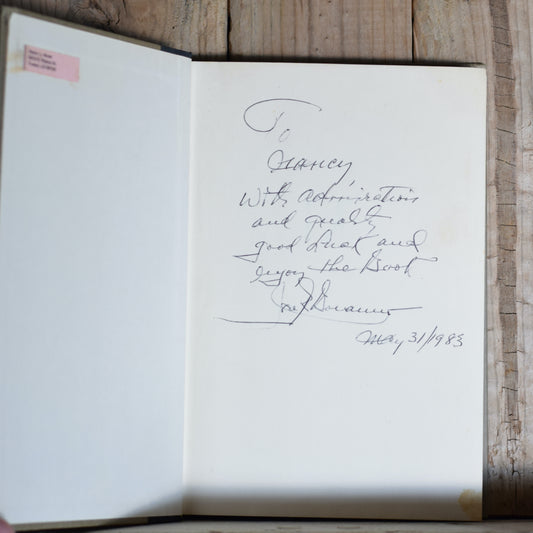 To
Nancy,
With admiration
and quality
good luck and
enjoy the Book
May 31/1983